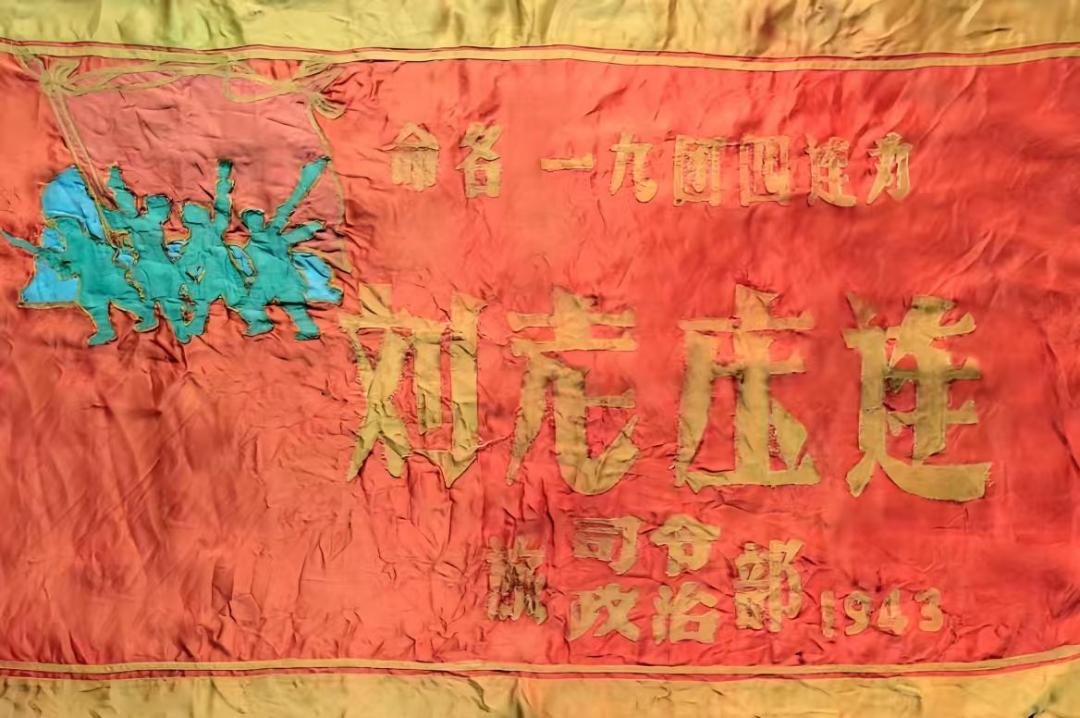 命名 一九团四连为
刘老庄连
旅 司令 政治 部 1943